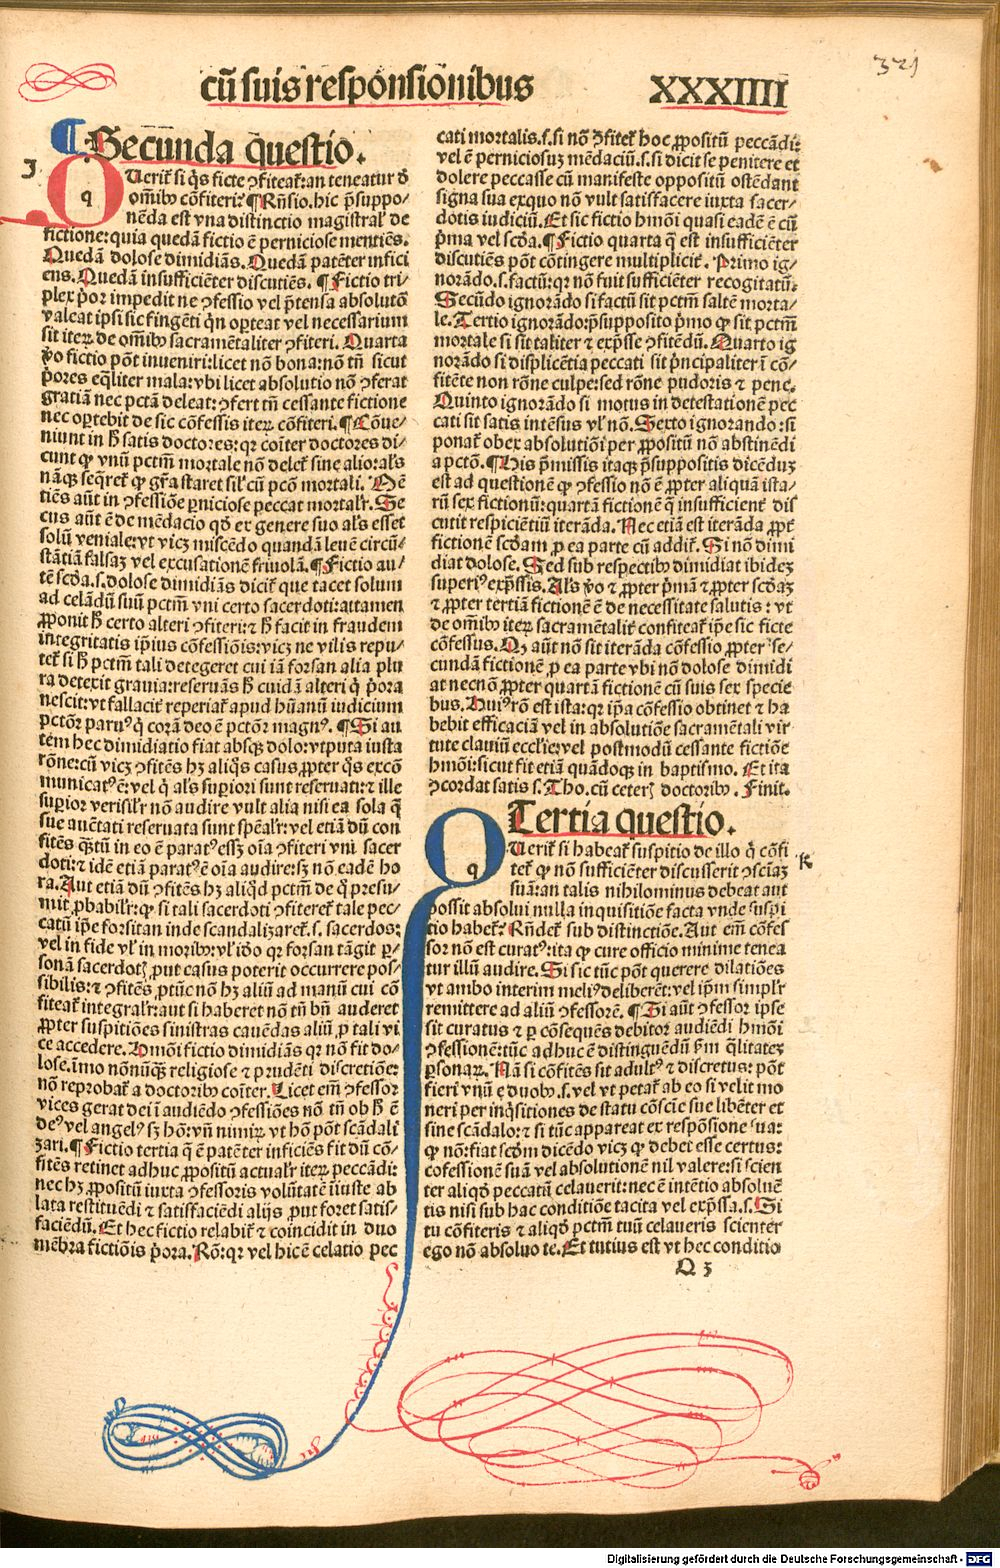 cū suis responsionibus XXXIIII
321
¶ Secunda questio.
3
QUerit̃ si q̇s ficte ꝯfiteat̃: an teneatur ð
om̄ibꝫ cōfiteri? ¶ Rñsio. hic p̄suppo-
nēda est vna distinctio magistral' de
fictione: quia quedā fictio ē perniciose mentiēs.
Quedā dolose dimidiās. Quedā patēter infici
ens. Quedā insufficiēter discutiēs. ¶ Fictio tri/
plex p̄or impedit ne ꝯfessio vel p̄tensa absolutō
valeat ipsi sic fingēti q̇n oꝑteat vel necessarium
sit iteꝝ de om̄ibꝫ sacramētaliter ꝯfiteri. Quarta
ṽo fictio pōt inveniri: licet nō bona: nō tñ sicut
p̄ores eq̄liter mala: vbi licet absolutio nō ꝯferat
gratiā nec pctā deleat: ꝯfert tñ cessante fictione
nec oꝑtebit de sic cōfessis iteꝝ cōfiteri. ¶ Cōue-
niunt in h̄ satis doctores: qr cōiter doctores di-
cunt ꝙ vnū pctm̄ mortale nō delet̃ sine alio: al's
nāqꝫ seq̄ret̃ ꝙ gr̄a staret sil' cū pcō mortali. Mē
tiēs aūt in ꝯfessiōe ꝑniciose peccat mortalr̄. Se
cus aūt ē de mēdacio qð ex genere suo al's esset
solū veniale: vt vicꝫ miscēdo quandā leuē circū/
stātiā falsaꝫ vel excusationē friuolā. ¶ Fictio au/
tē scða. s. dolose dimidiās dicit̃ que tacet solum
ad celādū suū pctm̄ vni certo sacerdoti: attamen
ꝓponit h̄ certo alteri ꝯfiteri: ⁊ h̄ facit in fraudem
integritatis ip̄ius cōfessiōis: vicꝫ ne vilis repu/
tet̃ si h̄ pctm̄ tali detegeret cui iā forsan alia plu
ra detexit grauia: reseruās h̄ cuidā alteri q̇ p̄ora
nescit: vt fallacit̃ reperiat̃ apud hūanū iudicium
pctōr paruꝰ q̇ corā deo ē pctōr magnꝰ. ¶ Si au
tem hec dimidiatio fiat absqꝫ dolo: vtputa iusta
rōne: cū vicꝫ ꝯfitēs hꝫ aliq̇s casus ꝓpter q̇s excō
municatꝰ ē: vel q̇ al's suꝑiori sunt reseruati: ⁊ ille
suꝑior verisil'r nō audire vult alia nisi ea sola q̄
sue auētati reseruata sunt spēalr̄: vel etiā dū con
fitēs q̄ꝫtū in eo ē paratꝰ essꝫ oīa ꝯfiteri vni sacer
doti: ⁊ idē etiā paratꝰ ē oīa audire: sꝫ nō eadē ho
ra. Aut etiā dū ꝯfitēs hꝫ aliqð pctm̄ de q̇ presu/
mit ꝓbabilr̄: ꝙ si tali sacerdoti ꝯfiteret̃ tale pec/
catū ip̄e forsitan inde scandalizaret̃. s. sacerdos:
vel in fide vl' in moribꝫ: vl' iðo qr forsan tāgit ꝑ-
sonā sacerdotꝭ, put casus poterit occurrere pos/
sibilis: ⁊ ꝯfitēs ꝓtūc nō hꝫ aliū ad manū cui cō
fiteat̃ integralr̄: aut si haberet nō tñ bñ auderet
ꝓpter suspitiōes sinistras cauēdas aliū ꝓ tali vi
ce accedere. Hmōi fictio dimidiās qr nō fit do/
lose. īmo nōnūqꝫ religiose ⁊ prudēti discretiōe:
nō reprobat̃ a doctoribꝫ cōiter. Licet em̄ ꝯfessor
vices gerat dei ī audiēdo ꝯfessiōes nō tñ ob h̄ ē
deꝰ vel angelꝰ sꝫ hō: vñ nimiꝝ vt hō pōt scādali
zari. ¶ Fictio tertia q̄ ē patēter inficiēs fit dū cō-
fitēs retinet adhuc ꝓpositū actualr̄ iteꝝ peccādi:
nec hꝫ ꝓpositū iuxta ꝯfessoris volūtatē iiuste ab
lata restituēdi ⁊ satisfaciēdi alijs ꝓut foret satis-
faciēdū. Et hec fictio relabit̃ ⁊ coincidit in duo
mēbra fictiōis p̄ora. Rō: qr vel hic ē celatio pec
cati mortalis. s. si nō ꝯfitet̃ hoc ꝓpositū peccādi:
vel ē perniciosuꝫ mēdaciū. s. si dicit se penitere et
dolere peccasse cū manifeste oppositū ostēdant
signa sua ex quo nō vult satisfacere iuxta sacer-
dotis iudiciū. Et sic fictio hmōi quasi eadē ē cū
p̄ma vel scða. ¶ Fictio quarta q̄ est insufficiēter
discutiēs pōt cōtingere multiplicit̃. Primo ig-
norādo. s. factū: qr nō fuit sufficiēter recogitatū.
Secūdo ignorādo si factū sit pctm̄ saltē morta-
le. Tertio ignorādo: p̄supposito p̄mo ꝙ sit pctm̄
mortale si sit taliter ⁊ exp̄sse ꝯfitēdū. Quarto ig
norādo si displicētia peccati sit p̄ncipaliter ī cō-
fitēte non rōne culpe: sed rōne pudoris ⁊ pene.
Quinto ignorādo si motus in detestationē pec
cati sit satis intēsus vl' nō. Sexto ignorando: si
ponat̃ obex absolutiōi per ꝓpositū nō abstinēdi
a pctō. ¶ His p̄missis itaqꝫ p̄suppositis dicēduꝫ
est ad questionē ꝙ ꝯfessio nō ē ꝓpter aliquā ista-
rū sex fictionū: quartā fictionē q̄ insufficient̃ dis
cutit respiciētiū iterāda. Nec etiā est iterāda ꝓpt̃
fictionē scðam ꝓ ea parte cū addit̃. Si nō dimi
diat dolose. Sed sub respectibꝫ dimidiat ibideꝫ
superiꝰ exp̄ssis. Al's ṽo ⁊ ꝓpter p̄mā ⁊ ꝓpter scðaꝫ
⁊ ꝓpter tertiā fictionē ē de necessitate salutis: vt
de om̄ibꝫ iteꝝ sacramētalit̃ confiteat̃ ip̄e sic ficte
cōfessus. Qꝫ aūt nō sit iterāda cōfessio ꝓpter se-
cundā fictionē ꝓ ea parte vbi nō dolose dimidi
at necnō ꝓpter quartā fictionē cū suis sex specie
bus. Huiꝰ rō est ista: qr ip̄a cōfessio obtinet ⁊ ha
bebit efficaciā vel in absolutiōe sacramētali vir
tute clauiū eccl'ie: vel postmodū cessante fictiōe
hmōi: sicut fit etiā quādoqꝫ in baptismo. Et ita
ꝯcordat satis s. Tho. cū ceterꝭ doctoribꝫ. Finit.
Tertia questio.
K
QUerit̃ si habeat̃ suspitio de illo q̇ cōfi
tet̃ ꝙ nō sufficiēter discusserit ꝯsciaꝫ
suā: an talis nihilominus debeat aut
possit absolui nulla inquisitiōe facta vnde suspi
tio habet̃? Rñdet̃ sub distinctiōe. Aut em̄ cōfes
sor nō est curatꝰ: ita ꝙ cure officio minime tenea
tur illū audire. Si sic tūc pōt querere dilatiōes
vt ambo interim meliꝰ deliberēt: vel ip̄m simplr̄
remittere ad aliū ꝯfessorē. ¶ Si aūt ꝯfessor ipse
sit curatus ⁊ ꝑ cōsequēs debitor audiēdi hmōi
ꝯfessionē: tūc adhuc ē distinguēdū ẜm q̄litateꝫ
ꝑsonaꝝ. Nā si cōfitēs sit adultꝰ ⁊ discretus: pōt
fieri vnū e duobꝫ. s. vel vt petat̃ ab eo si velit mo
neri per inq̇sitiones de statu cōscīe sue libēter et
sine scādalo: ⁊ si tūc appareat ex respōsione sua:
ꝙ nō: fiat scðm dicēdo vicꝫ ꝙ debet esse certus:
cofessionē suā vel absolutionē nil valere: si scien
ter aliqð peccatū celauerit: nec ē intētio absoluē
tis nisi sub hac conditiōe tacita vel exp̄ssa. s. Si
tu cōfiteris ⁊ aliqð pctm̄ tuū celaueris scienter
ego nō absoluo te. Et tutius est vt hec conditio
Q 3
Digitalisierung gefördert durch die Deutsche Forschungsgemeinschaft - DFG